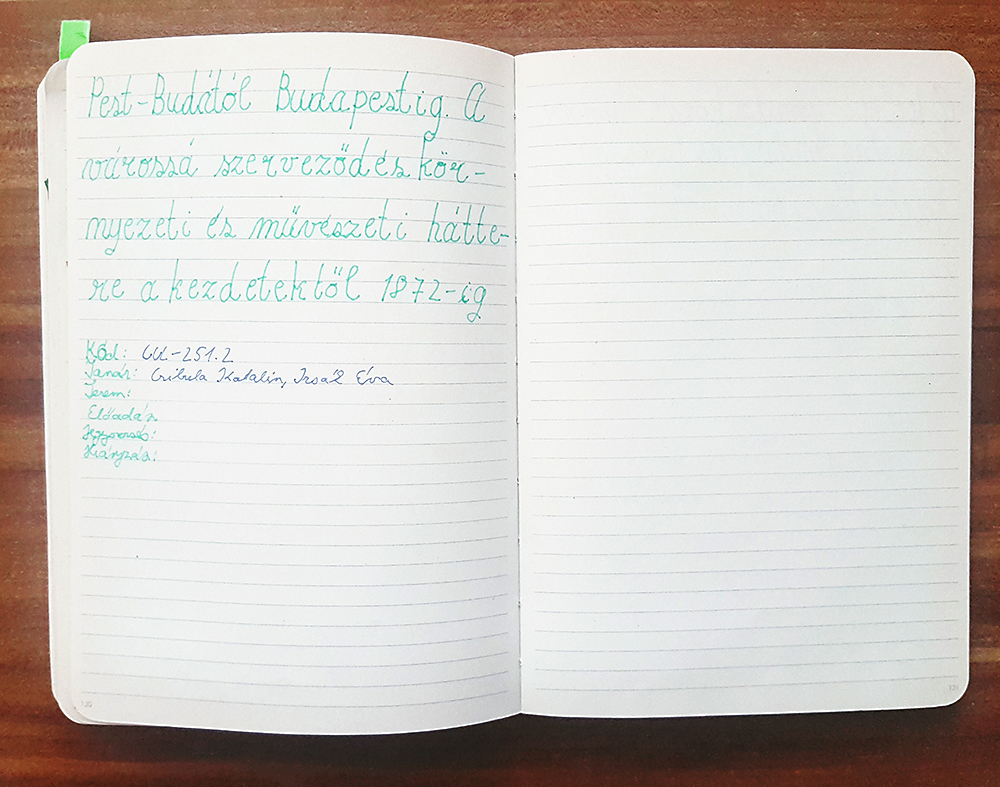 Pest-Budától Budapestig. A
várossá szerveződés kör-
nyezeti és művészeti hátte-
re a kezdetektől 1872-ig
Kód: -251.2
Tanár: Katalin, Éva
Terem:
Előadás
Jegyszerzés:
Hiányzás:
130
131